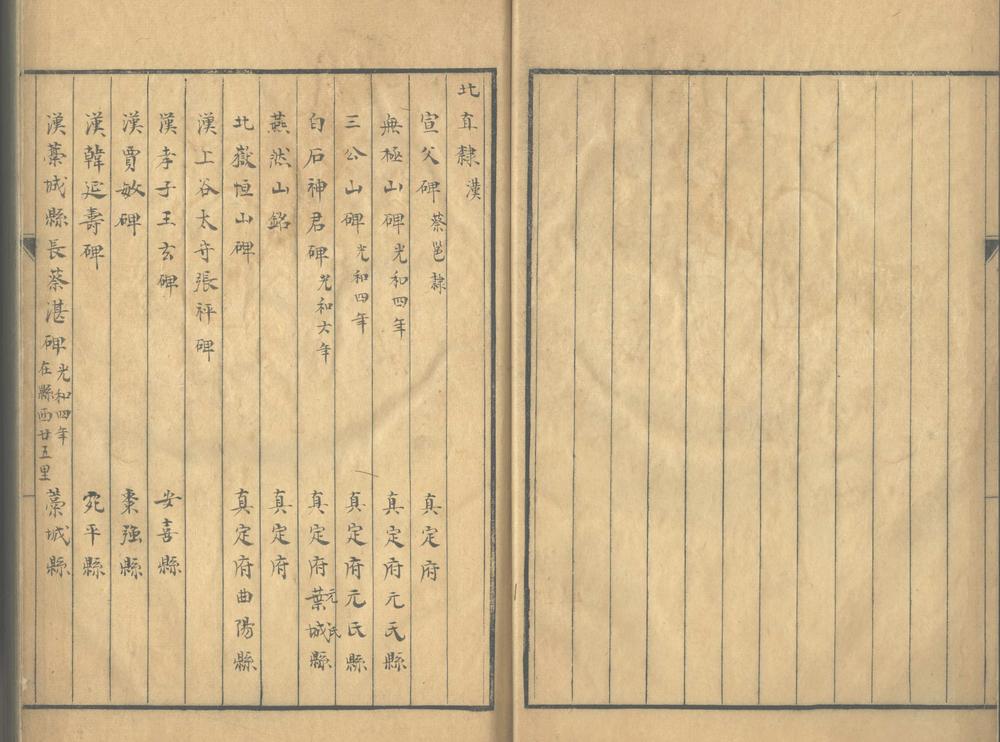 北直隸 漢
宣父碑 蔡邕隸 真定府
無極山碑 光和四年 真定府元氏縣
三公山碑 光和四年 真定府元氏縣
白石神君碑 光和六年 真定府葉城縣 元氏
燕然山銘 真定府
北嶽恒山碑 真定府曲陽縣
漢上谷太守張祥碑
漢孝子王玄碑 安喜縣
漢賈敏碑 棗強縣
漢韓延壽碑 宛平縣
漢藁城縣長蔡湛碑 光和四年 在縣西廿五里 藁城縣